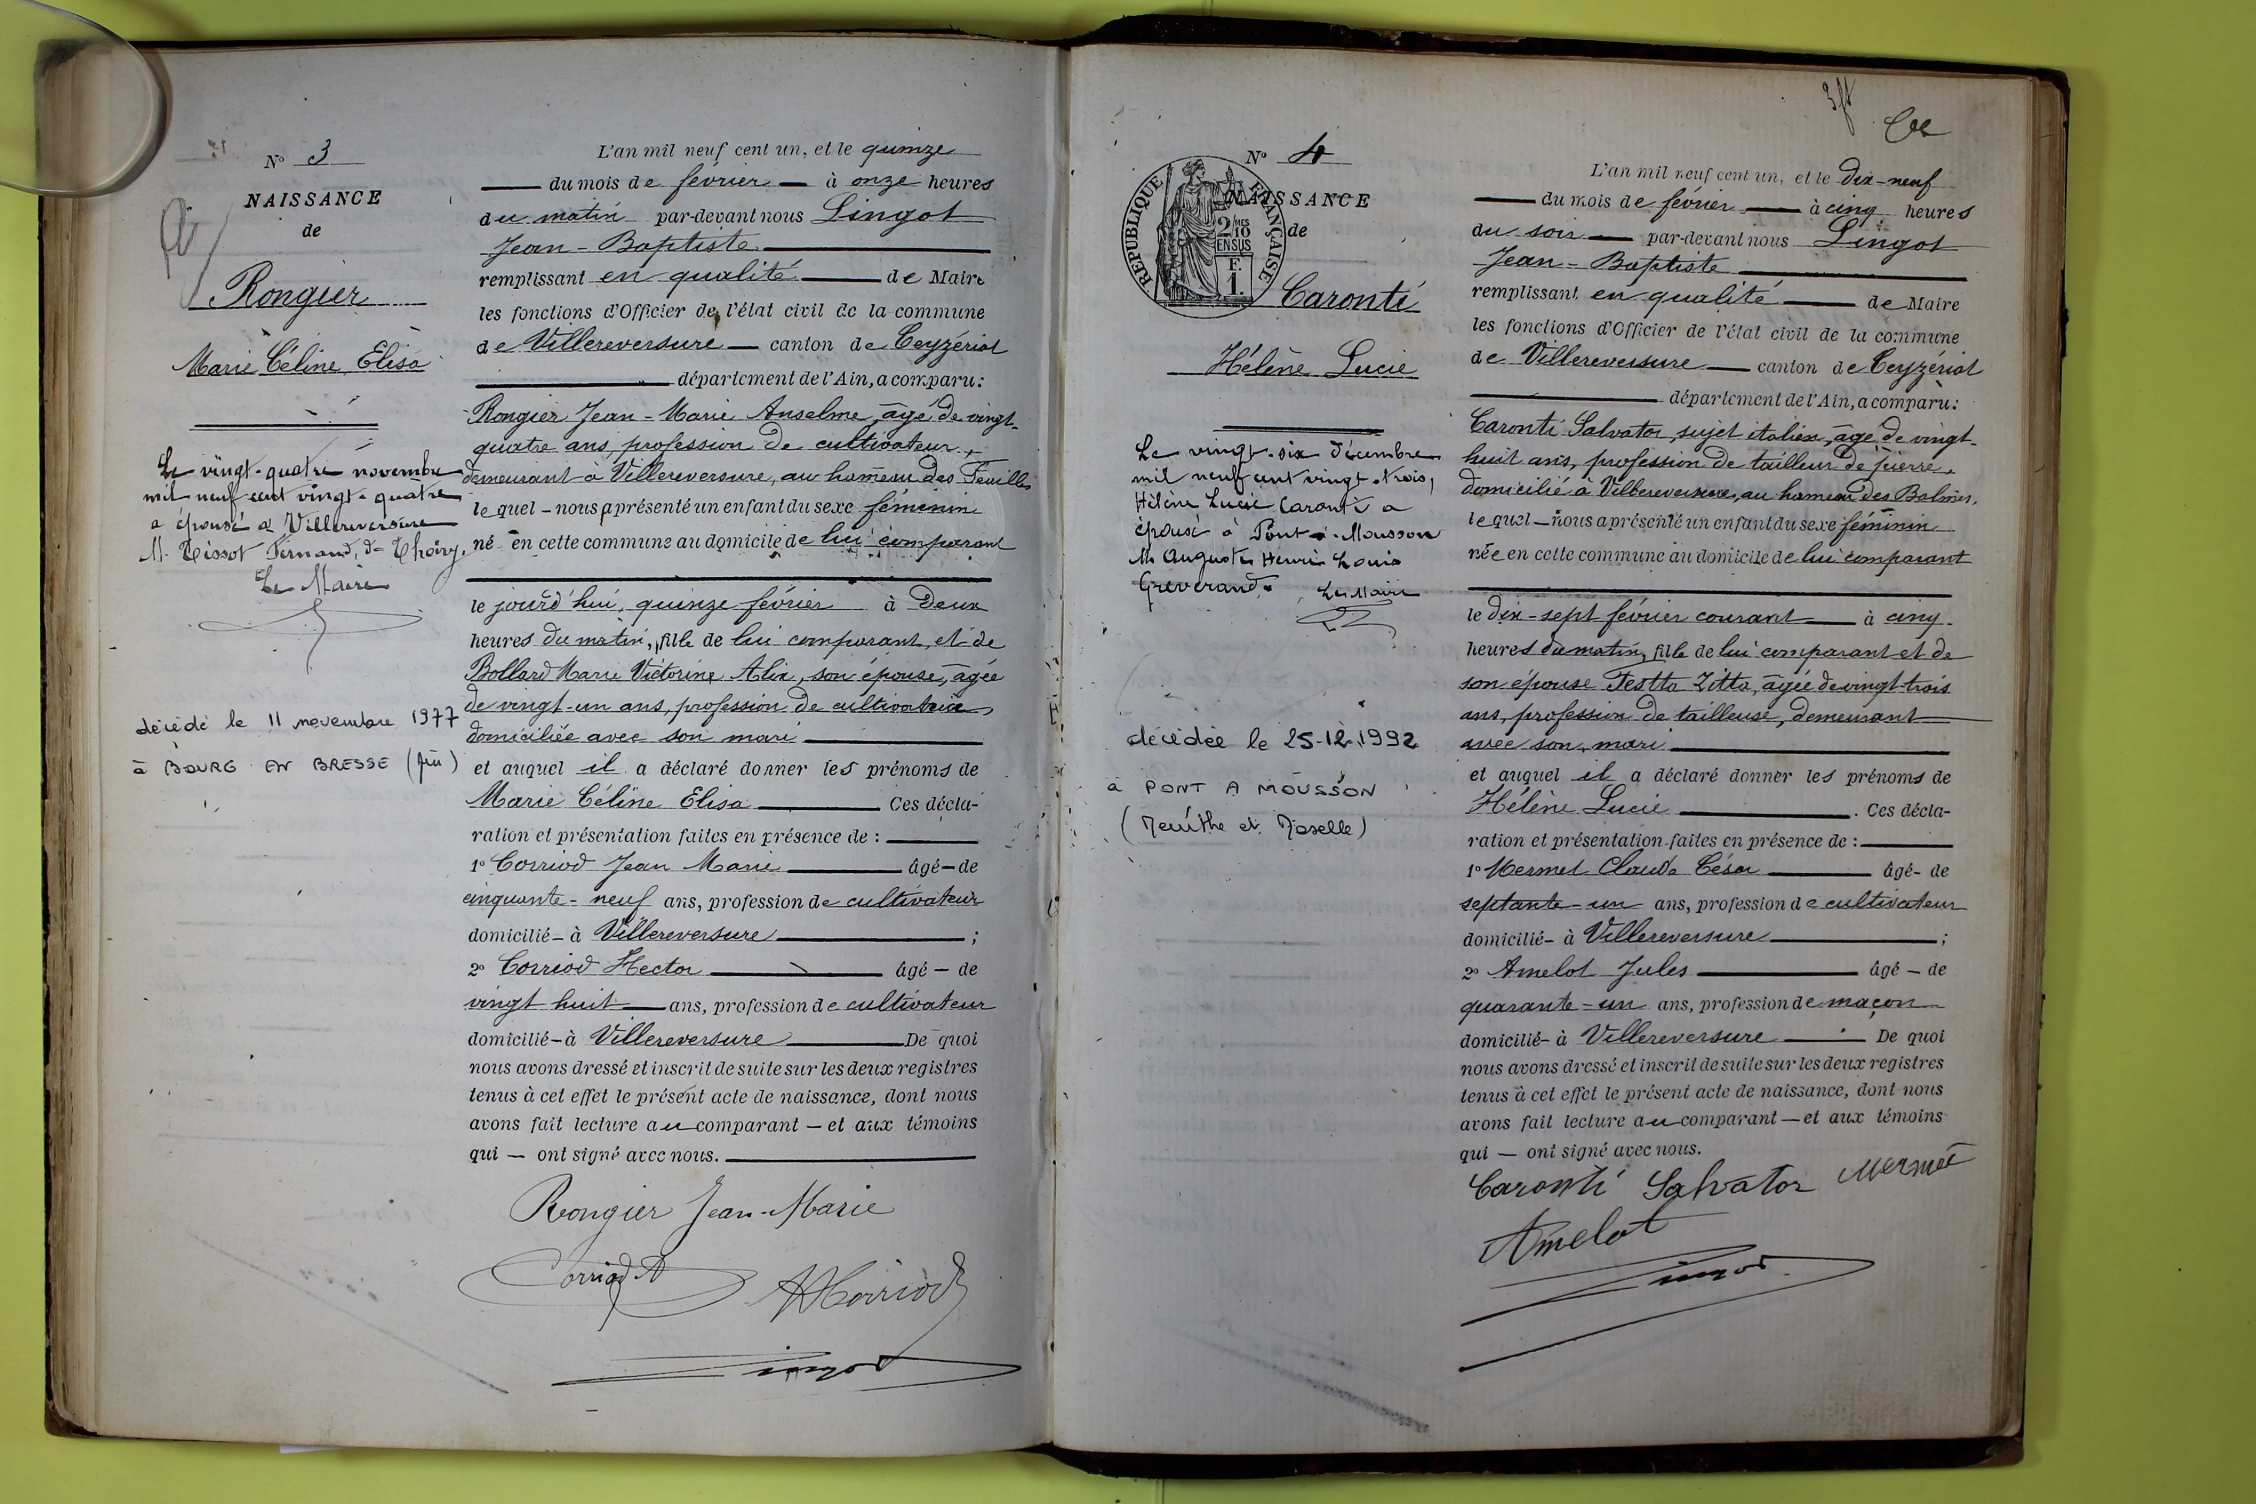 N° 3
NAISSANCE
de
Rongier
Marie Céline Elisa
Le vingt-quatre novembre
mil neuf cent vingt-quatre
a épousé à Villereversure
M. Tissot Fernand, de Thoiry.
Le Maire
décédé le 11 novembre 1977
à BOURG EN BRESSE (Ain)
L'an mil neuf cent un, et le quinze
du mois de février à onze heures
du matin par-devant nous Lingot
Jean-Baptiste
remplissant en qualité de Maire
les fonctions d'Officier de l'état civil de la commune
de Villereversure canton de Ceyzériat
département de l'Ain, a comparu:
Rongier Jean-Marie Anselme, âgé de vingt-
quatre ans, profession de cultivateur,
demeurant à Villereversure, au hameau des Feuilles
le quel - nous a présenté un enfant du sexe féminin
né en cette commune au domicile de lui comparant
le jourd'hui, quinze février à deux
heures du matin, fille de lui comparant, et de
Bollard Marie Victorine Alix, son épouse, âgée
de vingt-un ans, profession de cultivatrice,
domiciliée avec son mari
et auquel il a déclaré donner les prénoms de
Marie Céline Elisa Ces décla-
ration et présentation faites en présence de :
1° Corriod Jean Marie âgé - de
cinquante-neuf ans, profession de cultivateur
domicilié - à Villereversure ;
2° Corriod Hector âgé - de
vingt huit ans, profession de cultivateur
domicilié - à Villereversure De quoi
nous avons dressé et inscrit de suite sur les deux registres
tenus à cet effet le présent acte de naissance, dont nous
avons fait lecture au comparant - et aux témoins
qui - ont signé avec nous.
Rongier Jean-Marie
Corriod
H Corriod
Lingot
N° 4
NAISSANCE
de
REPUBLIQUE FRANÇAISE
2/10 MES
EN SUS
F.
1.
Caronti
Hélène Lucie
Le vingt-six Décembre
mil neuf cent vingt-trois,
Hélène Lucie Caronti a
épousé à Pont-à-Mousson
M. Auguste Henri Louis
Greverand.
Le Maire
décédée le 25-12-1992
à PONT A MOUSSON
(Meurthe et Moselle)
L'an mil neuf cent un, et le dix-neuf
du mois de février à cinq heures
du soir par-devant nous Lingot
Jean-Baptiste
remplissant en qualité de Maire
les fonctions d'Officier de l'état civil de la commune
de Villereversure canton de Ceyzériat
département de l'Ain, a comparu:
Caronti Salvator, sujet italien, âgé de vingt-
huit ans, profession de tailleur de pierre,
domicilié à Villereversure, au hameau des Balmes,
le quel - nous a présenté un enfant du sexe féminin
née en cette commune au domicile de lui comparant
le dix-sept février courant à cinq
heures du matin, fille de lui comparant et de
son épouse Testta Zitta, âgée de vingt-trois
ans, profession de tailleuse, demeurant
avec son mari
et auquel il a déclaré donner les prénoms de
Hélène Lucie . Ces décla-
ration et présentation faites en présence de :
1° Mermet Claude César âgé - de
septante-un ans, profession de cultivateur
domicilié - à Villereversure ;
2° Amelot Jules âgé - de
quarante-un ans, profession de maçon
domicilié - à Villereversure De quoi
nous avons dressé et inscrit de suite sur les deux registres
tenus à cet effet le présent acte de naissance, dont nous
avons fait lecture au comparant - et aux témoins
qui - ont signé avec nous.
Caronti Salvator Mermet
Amelot
Lingot